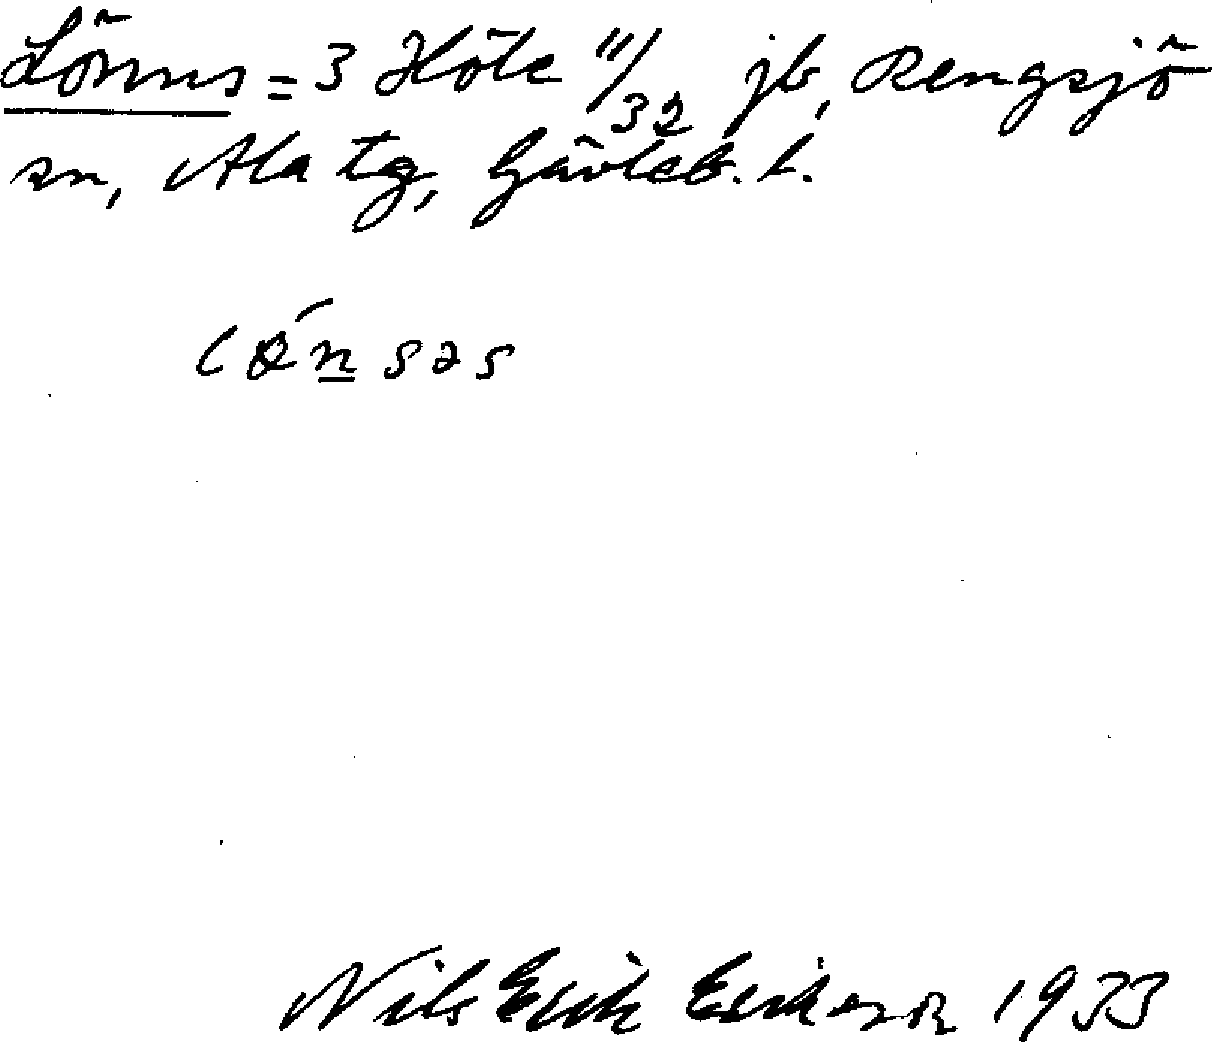 Lönns = 3 Höle 11/32 jb, Rengsjö
sn, Ala tg, Gävleb. l.
lǿn̲səs
Nils Erik Eriksson 1933